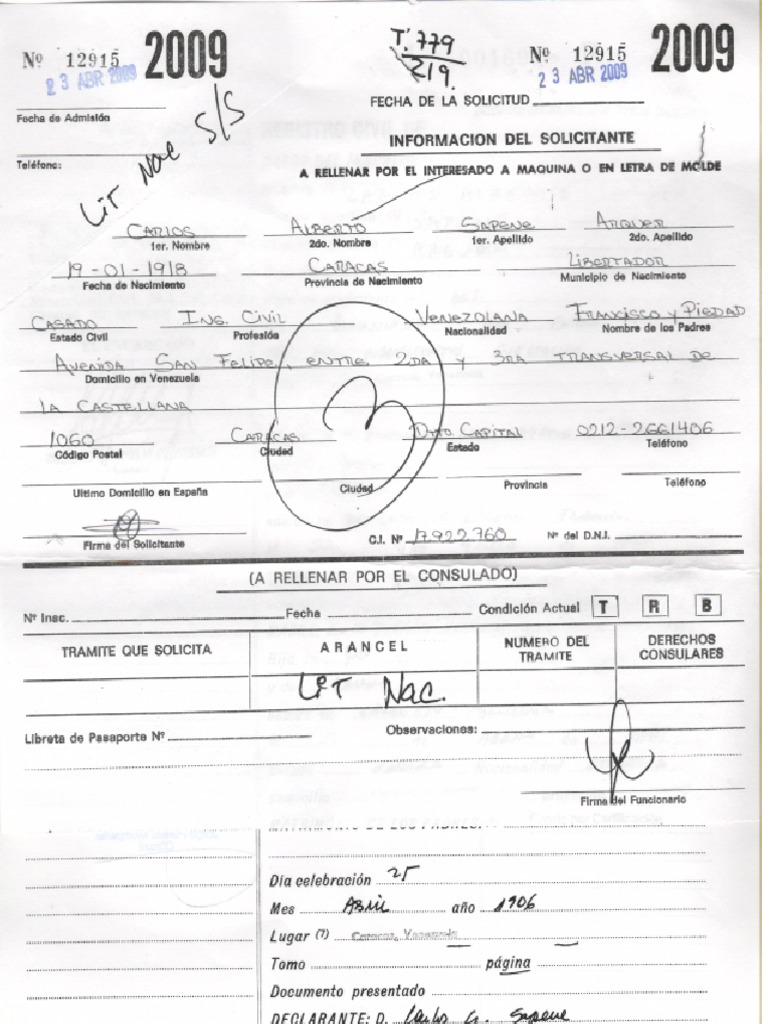 Nº 12915 2009
23 ABR 2009
Fecha de Admisión
Teléfono:
LiT Nac S/S
T: 779
219.
Nº 12915 2009
23 ABR 2009
FECHA DE LA SOLICITUD
INFORMACION DEL SOLICITANTE
A RELLENAR POR EL INTERESADO A MAQUINA O EN LETRA DE MOLDE
CARLOS ALBERTO SAPENE ARQUER
1er. Nombre 2do. Nombre 1er. Apellido 2do. Apellido
19-01-1918 CARACAS LIBERTADOR
Fecha de Nacimiento Provincia de Nacimiento Municipio de Nacimiento
CASADO ING. CIVIL VENEZOLANA FRANCISCO y PIEDAD
Estado Civil Profesión Nacionalidad Nombre de los Padres
AVENIDA SAN FELIPE, ENTRE 2DA y 3RA TRANSVERSAL DE
Domicilio en Venezuela
LA CASTELLANA
1060 CARACAS Dtto CAPITAL 0212-2661406
Código Postal Ciudad Estado Teléfono
3
Ultimo Domicilio en España Ciudad Provincia Teléfono
Firma del Solicitante C.I. Nº 17922760 Nº del D.N.I.
(A RELLENAR POR EL CONSULADO)
Nº Insc. Fecha Condición Actual T R B
TRAMITE QUE SOLICITA ARANCEL NUMERO DEL TRAMITE DERECHOS CONSULARES
LiT Nac.
Libreta de Pasaporte Nº Observaciones:
Firma del Funcionario
MATRIMONIO DE LOS PADRES
Día celebración 25
Mes Abril año 1906
Lugar (7) Caracas, Venezuela
Tomo página
Documento presentado
DECLARANTE: D. Carlos A. Sapene